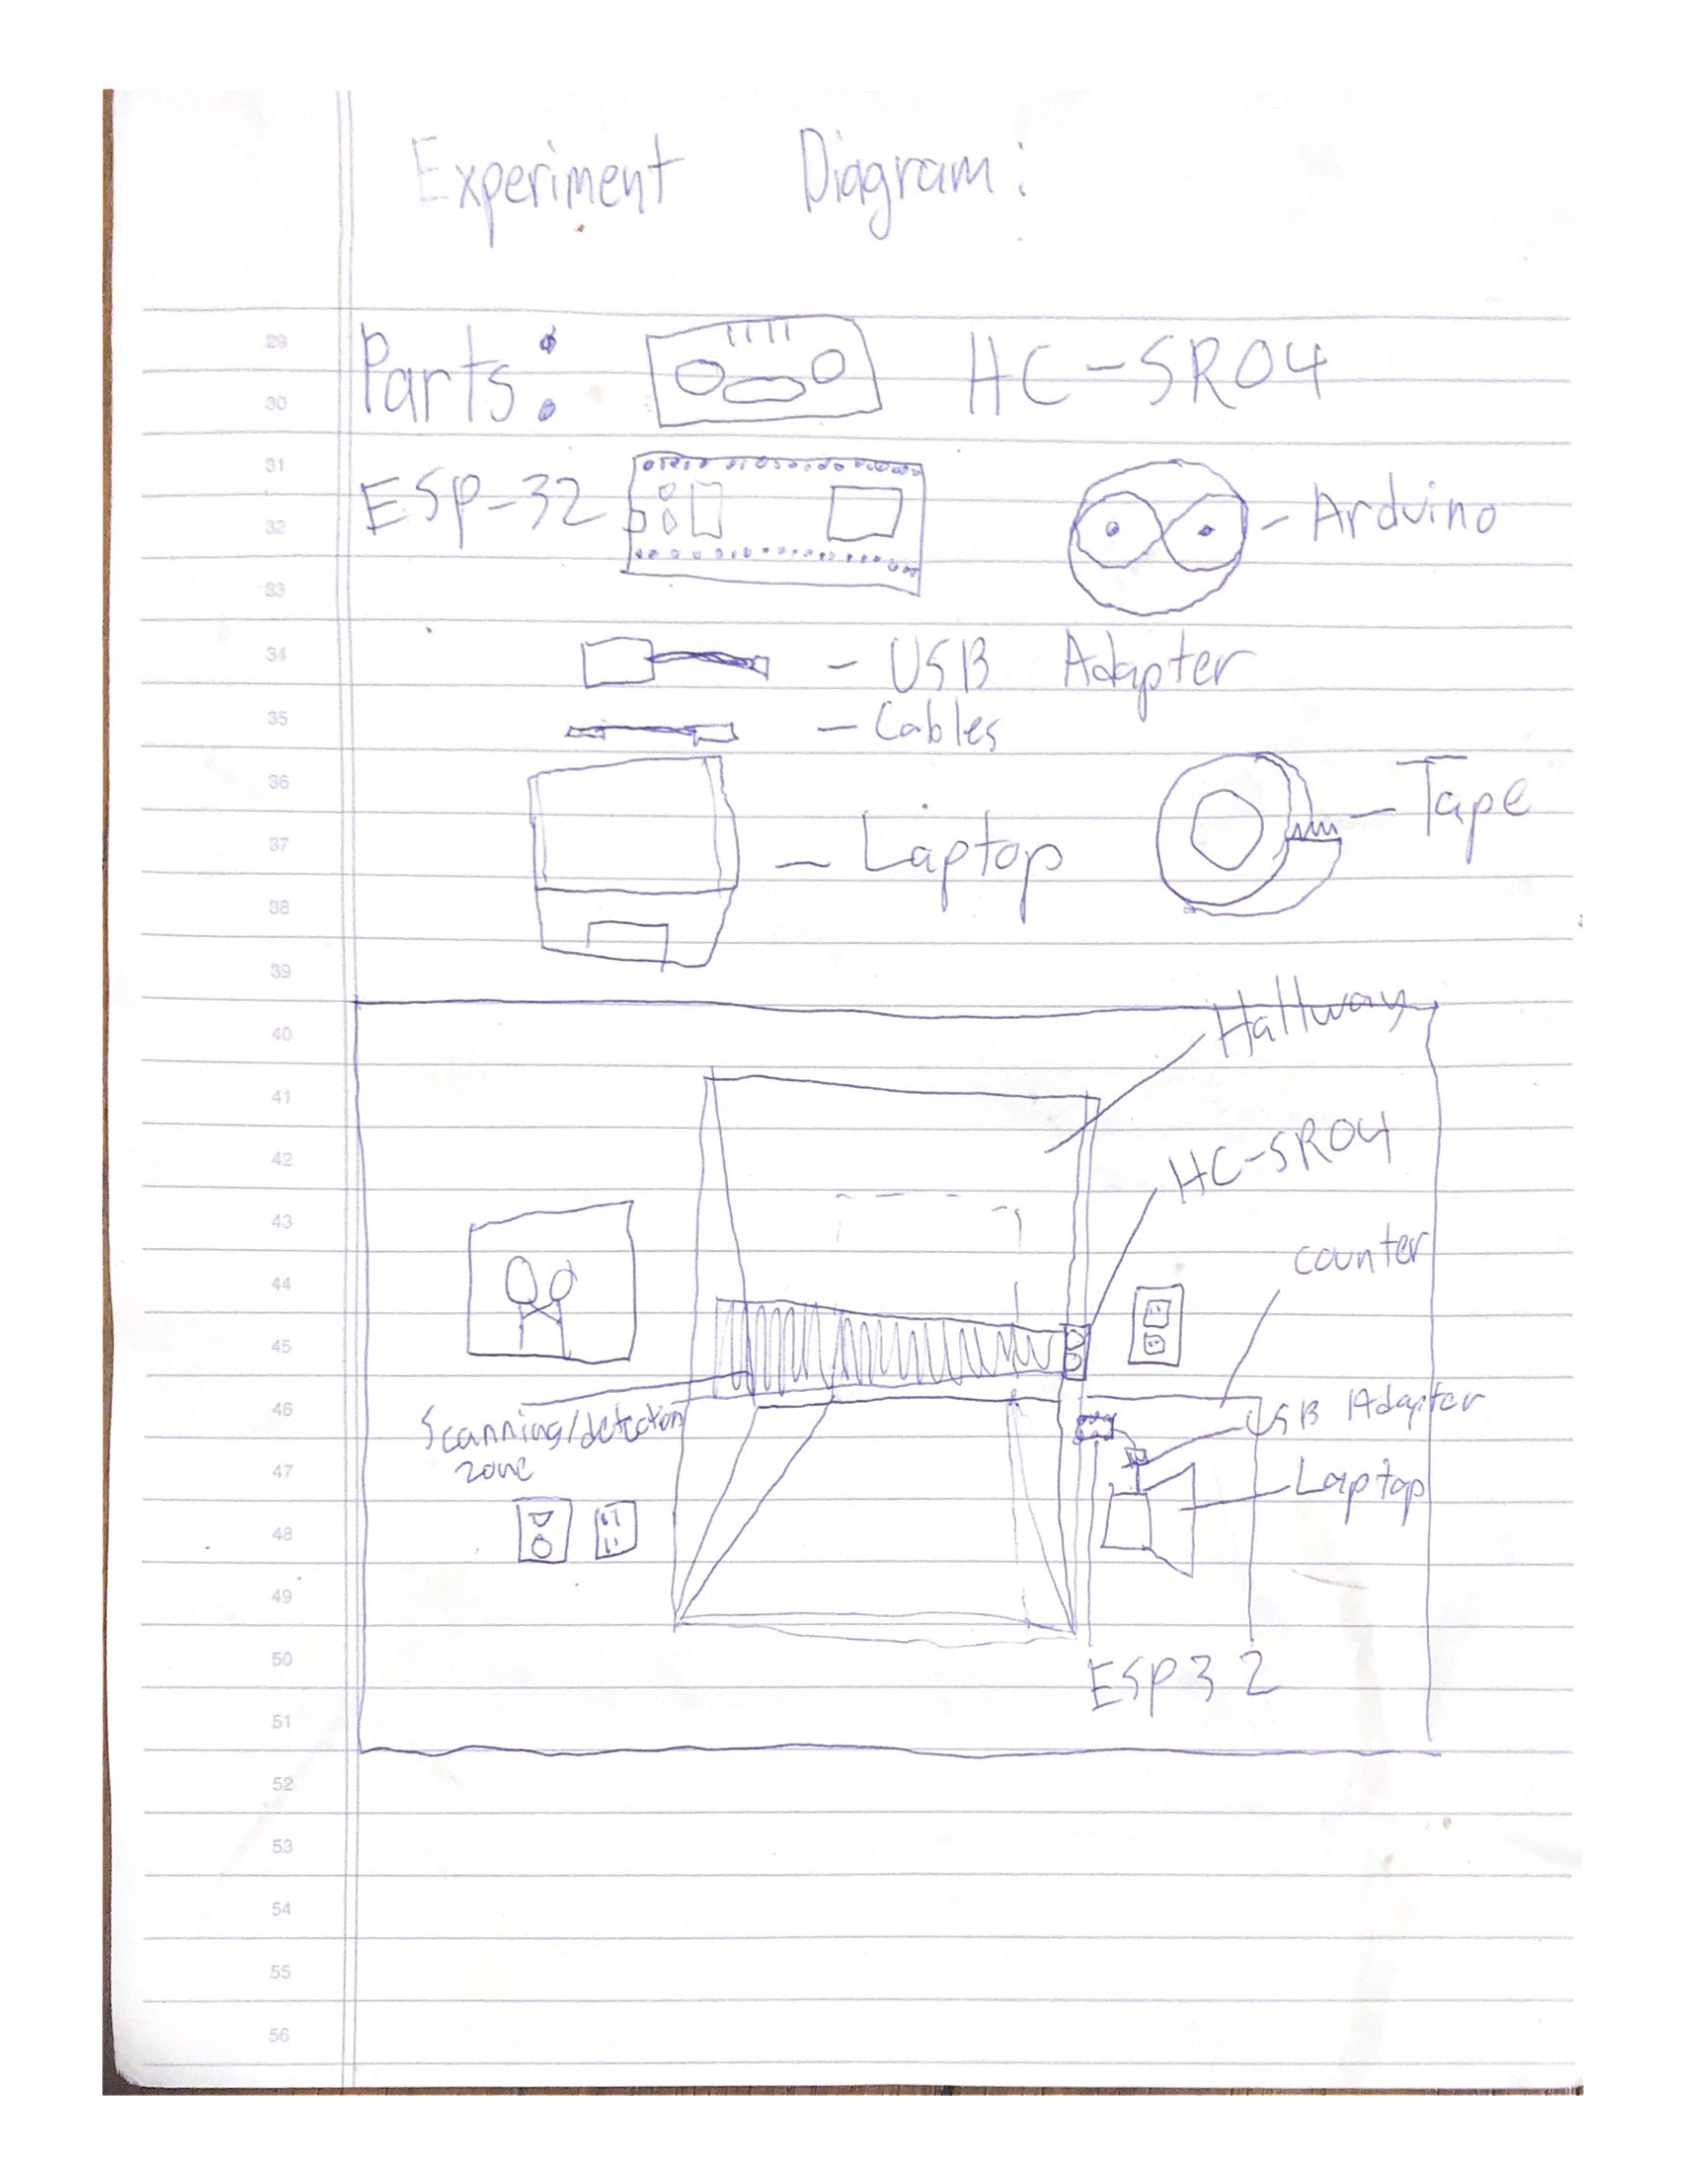 Experiment Diagram:
29
Parts: HC-SR04
30
31
ESP-32 - Arduino
32
33
34
- USB Adapter
35
- Cables
36
- Tape
37
- Laptop
38
39
Hallway
40
41
42
HC-SR04
43
counter
44
45
46
USB Adapter
Scanning/detection
zone
47
Laptop
48
49
50
ESP32
51
52
53
54
55
56